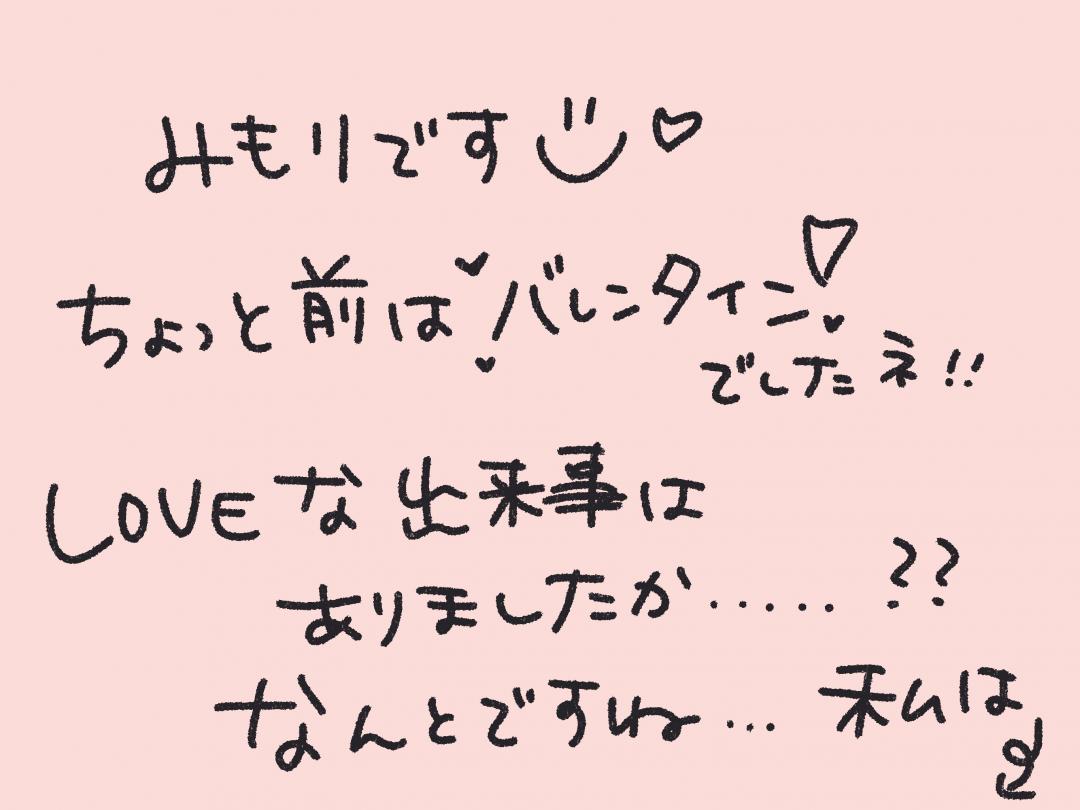 みもりです♡
ちょっと前はバレンタイン♡
でしたネ!!
LOVEな出来事は
ありましたか......??
なんとですね... 私は